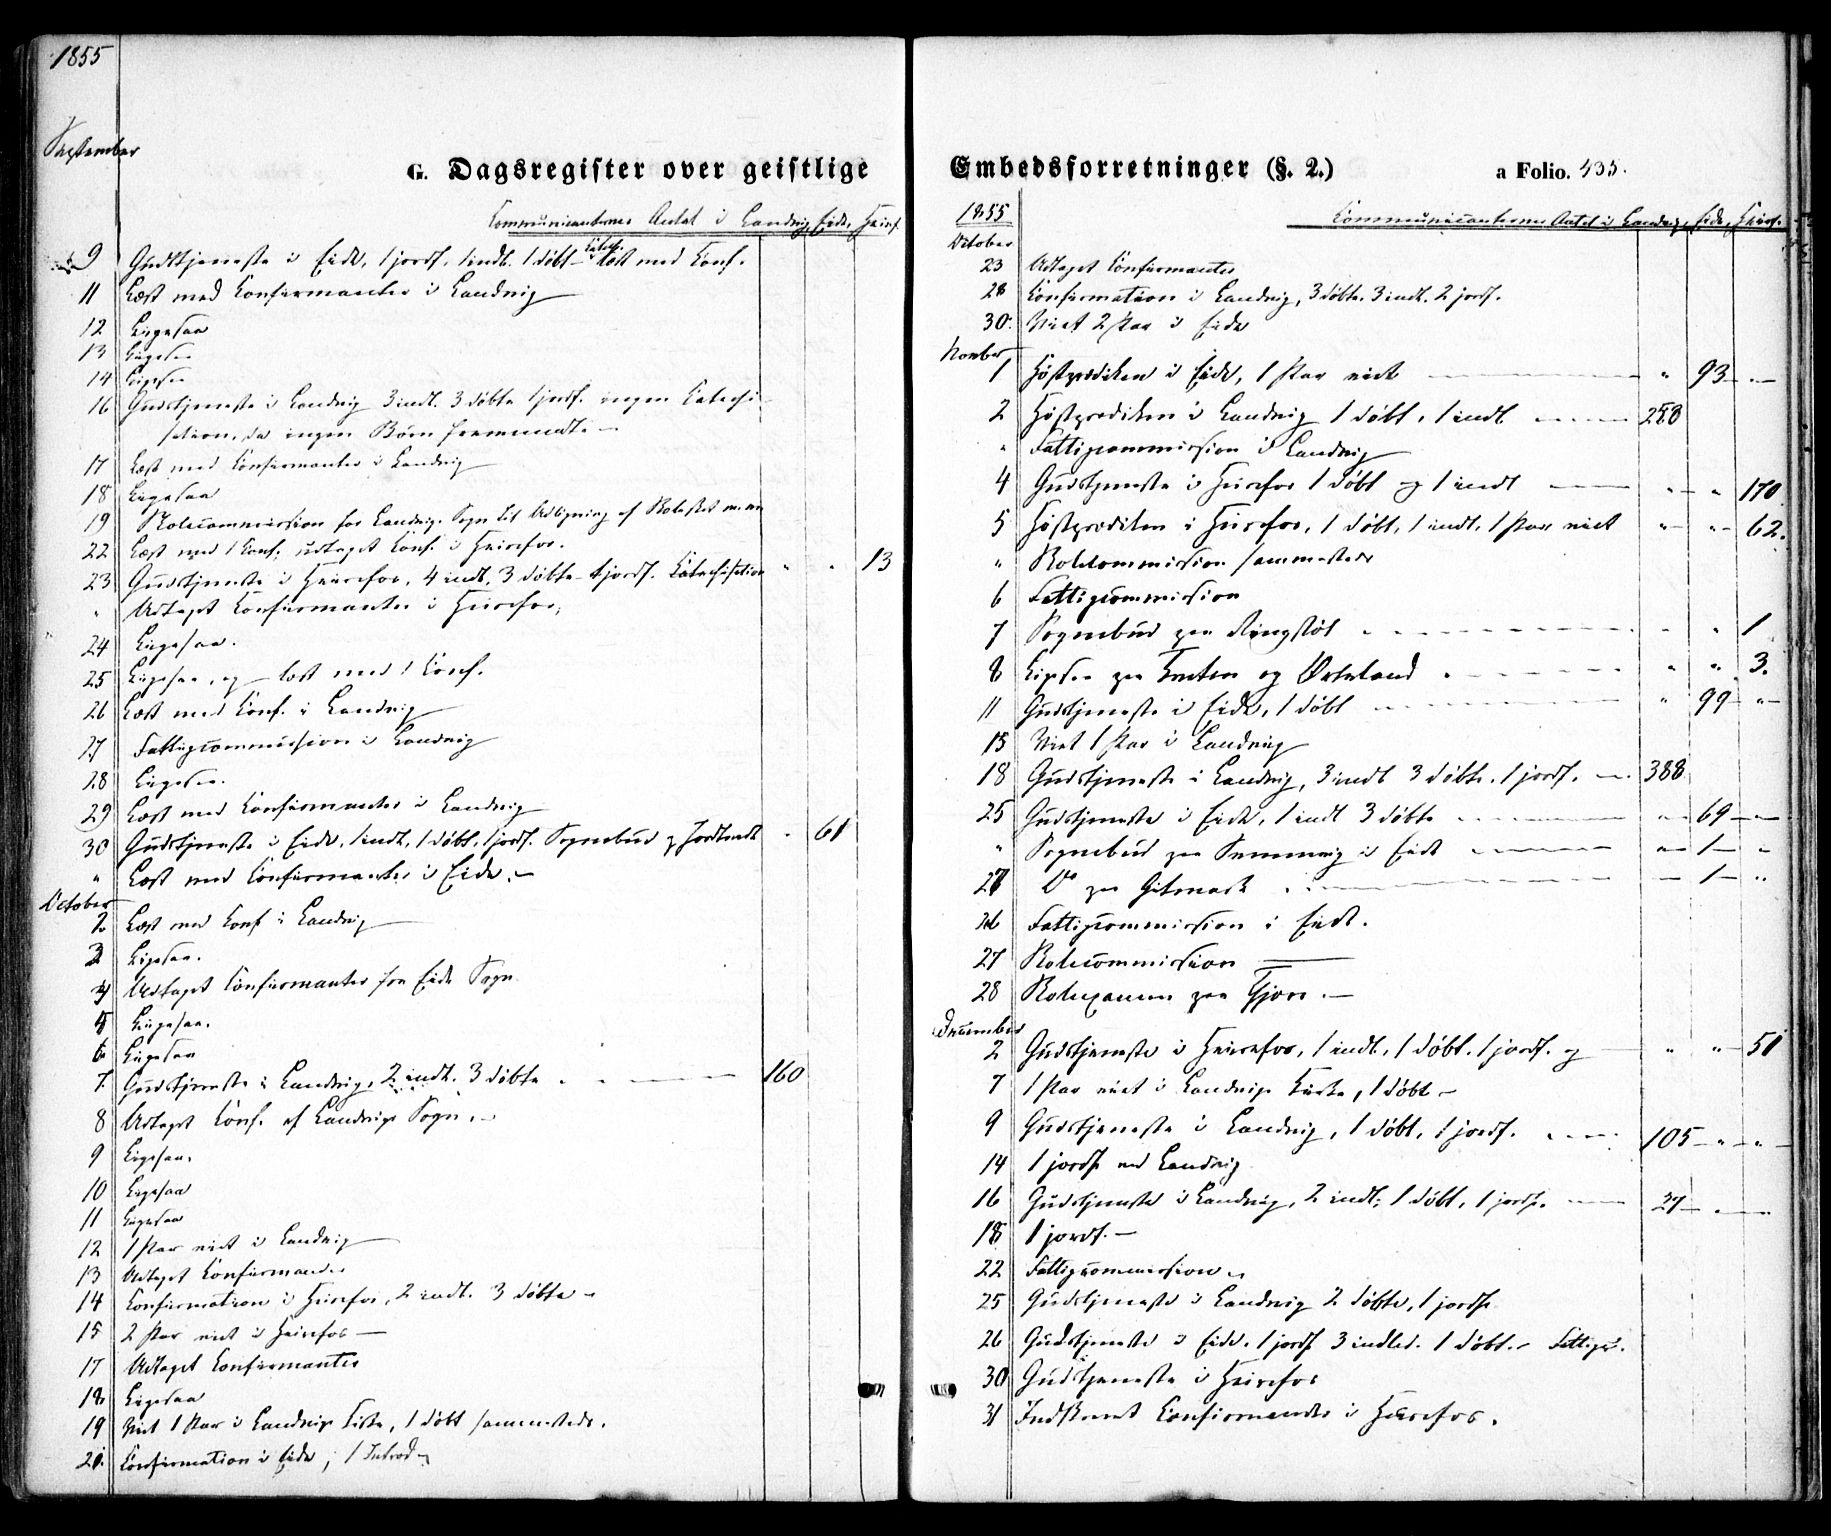 1855
September
G. Dagsregister over geistlige
Communicanternes Antal i Landvig, Eide, Heiref.
9 Gudstjeneste i Eide, 1 jordf. 1 indl. 1 döbt – Catech. læst med Conf.
11 Læst med Confirmanter i Landvig
12 Ligesaa
13 Ligesaa
14 Ligesaa
16 Gudstjeneste i Landvig 3 indl. 3 döbte 1 jordf. ingen Catechi
sation, da ingen Børn fremmødt. –
17 Læst med Confirmanter i Landvig
18 Ligesaa
19 Skolecommission for Landvigs Sogn til Udligning af
22 Læst med 1 Conf. udtaget Conf. i Heirefos.
23 Gudstjeneste i Heirefos, 4 indl. 3 döbte – 1 jordf. Catechisation " " 13
" Udtaget Confirmanter i Heirefos,
24 Ligesaa.
25 Ligesaa, og – læst med 1 Conf.
26 Læst med Conf. i Landvig
27 Fattigcommission i Landvig
28 Ligesaa.
29 Læst med Confirmanter i Landvig
30 Gudstjeneste i Eide, 1 indl. 1 döbt, 1 jordf. Sognebud " 61
" Læst med Confirmanter i Eide. –
October
2 Læst med Conf i Landvig
3 Ligesaa.
4 Udtaget Confirmanter fra Eide Sogn
5 Ligesaa.
6 Ligesaa
7. Gudstjeneste i Landvig, 2 indl. 3 döbte 160
8 Udtaget Conf. af Landvigs Sogn. –
9 Ligesaa.
10 Ligesaa
11 Ligesaa
12 1 Par viet i Landvig
13 Udtaget Confirmander
14 Confirmation i Heirefos, 2 indl. 3 döbte –
15 2 Par viet i Heirefos –
17 Udtaget Confirmanter
18 Ligesaa
19 Viet 1 Par i Landvigs Kirke, 1 döbt sammesteds.
21. Confirmation i Eide, 1 Introd –
Embedsforretninger (§. 2.)
a Folio. 535.
Communicanternes Antal i Landvig, Eide, Heiref.
1855
October
23 Udtaget Confirmanter
28 Confirmation i Landvig, 3 döbte. 3 indl. 2 jordf.
30. Viet 2 Par i Eide
Novbr
1 Höstprædiken i Eide, 1 Par viet – " 93 " –
2 Höstprædiken i Landvig 1 döbt, 1 indl – 258
" Fattigcommission i Landvig
4 Gudstjeneste i Heirefos 1 döbt og 1 indl – " – " 170
5 Höstprædiken i Heirefos, 1 döbt, 1 indl, 1 Par viet " – " – 62.
" Skolecommission sammesteds
6 Fattigcommission
7 Sognebud paa Ringsköt – " 1
8 Ligesaa paa og Østerland " " 3.
11 Gudstjeneste i Eide, 1 döbt – " 99 – " –
15 Viet 1 Par i Landvig
18 Gudstjeneste i Landvig, 3 indl 3 döbte. 1 jordf. – 388
25 Gudstjeneste i Eide, 1 indl 3 döbte – " – 69 – " –
" Sognebud paa i Eide – " – 1 – "
Do paa Gitmark – – 1 – "
26 Fattigcommission i Eide.
27 Skolecommission
28 Skoleexamen paa Fjære. –
December
2 Gudstjeneste i Heirefos, 1 indl. 1 döbt. 1 jordf. og – " " – 51
7 1 Par viet i Landvigs Kirke, 1 döbt –
9 Gudstjeneste i Landvig, 1 döbt, 1 jordf. – 105 – " – " –
14 1 jordf. ved Landvig
16 Gudstjeneste i Landvig, 2 indl; 1 döbt, 1 jordf. – 27 –
18 1 jordf. –
22 Fattigcommission
25 Gudstjeneste i Landvig 2 döbte, 1 jordf.
26 Gudstjeneste i Eide. 1 jordf 3 indled. 1 döbt. – Fattigc.
30 Gudstjeneste i Heirefos
31 Indskrevet Confirmander i Heirefos.